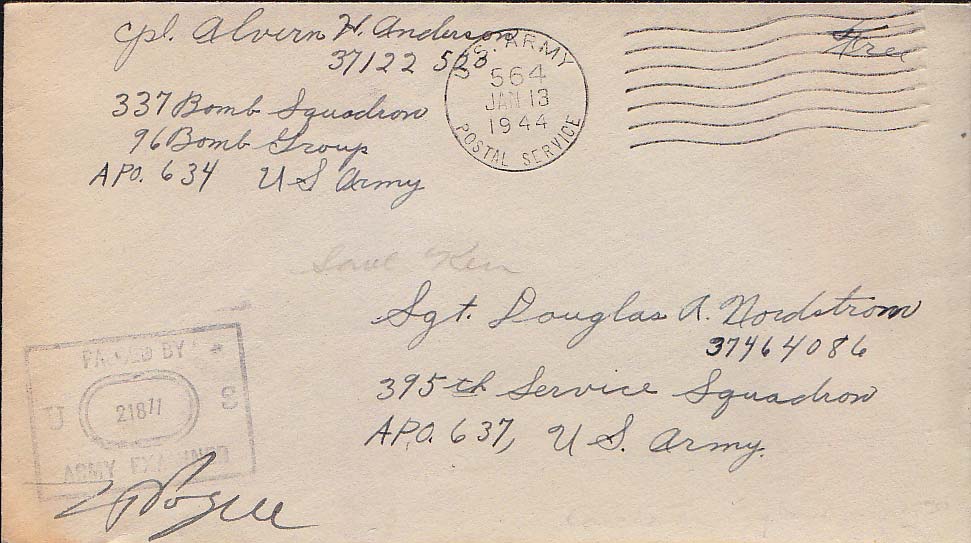 Cpl. Alvern H. Anderson
37122 528
337 Bomb Squadron
96 Bomb Group
APO. 634 US Army
U.S. ARMY
564
JAN 13
1944
POSTAL SERVICE
Free
Sgt. Douglas A. Nordstrom
37464086
395th Service Squadron
A.P.O. 637, U.S. Army.
PASSED BY
U S
21877
ARMY EXAMINER